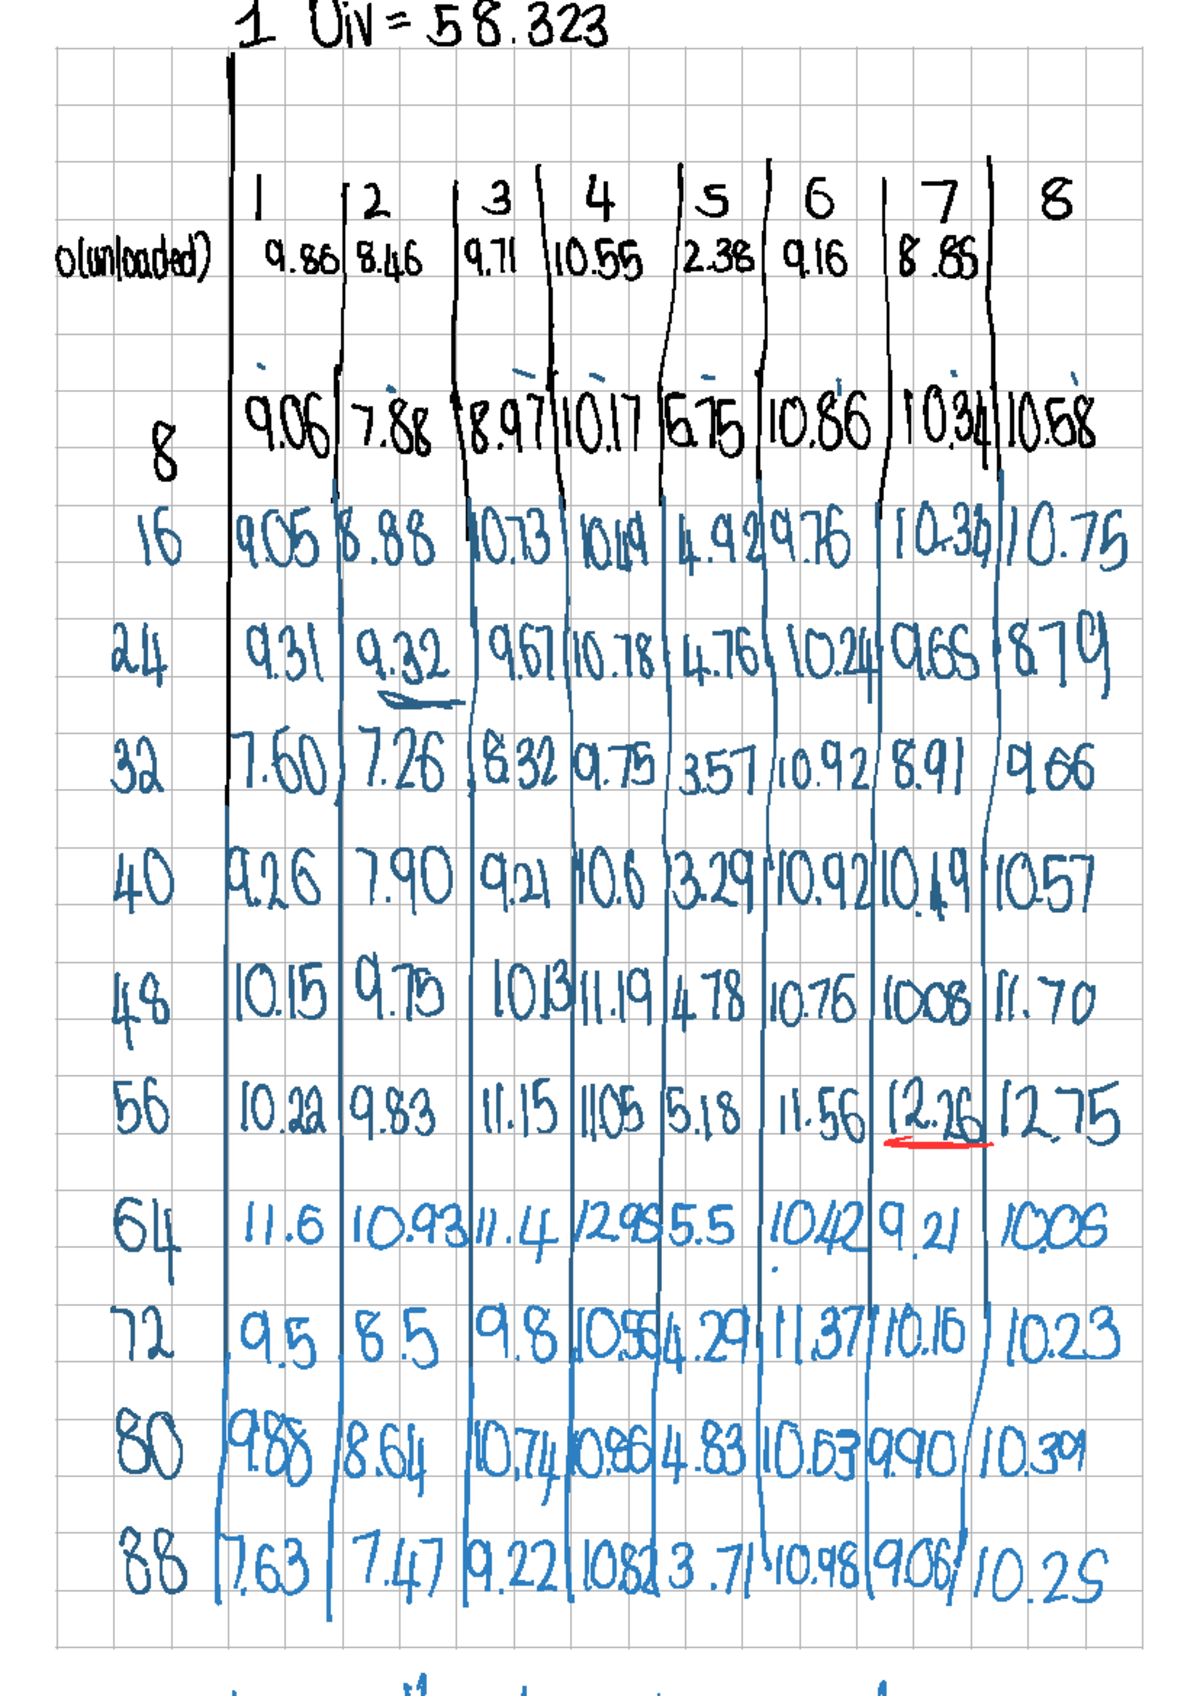 1 Div = 58.323
1 2 3 4 5 6 7 8
0(unloaded) 9.86 8.46 9.71 10.55 2.38 9.16 8.85
8 9.06 7.88 8.97 10.17 5.75 10.86 10.34 10.58
16 9.05 8.88 10.73 10.49 4.92 9.76 10.34 10.75
24 9.31 9.32 9.67 10.78 4.76 10.24 9.65 8.79
32 7.60 7.26 8.32 9.75 3.57 10.92 8.91 9.66
40 9.26 7.90 9.21 10.6 3.29 10.92 10.49 10.57
48 10.15 9.75 10.13 11.19 4.78 10.76 1008 11.70
56 10.22 9.83 11.15 1105 5.18 11.56 12.26 12.75
64 11.6 10.93 11.4 12.95 5.5 1042 9.21 10.05
72 9.5 8.5 9.8 10.56 4.29 11.37 10.16 10.23
80 9.88 8.64 10.74 10.86 4.83 10.63 9.90 10.39
88 7.63 7.47 9.22 10.82 3.71 10.98 9.06 10.25